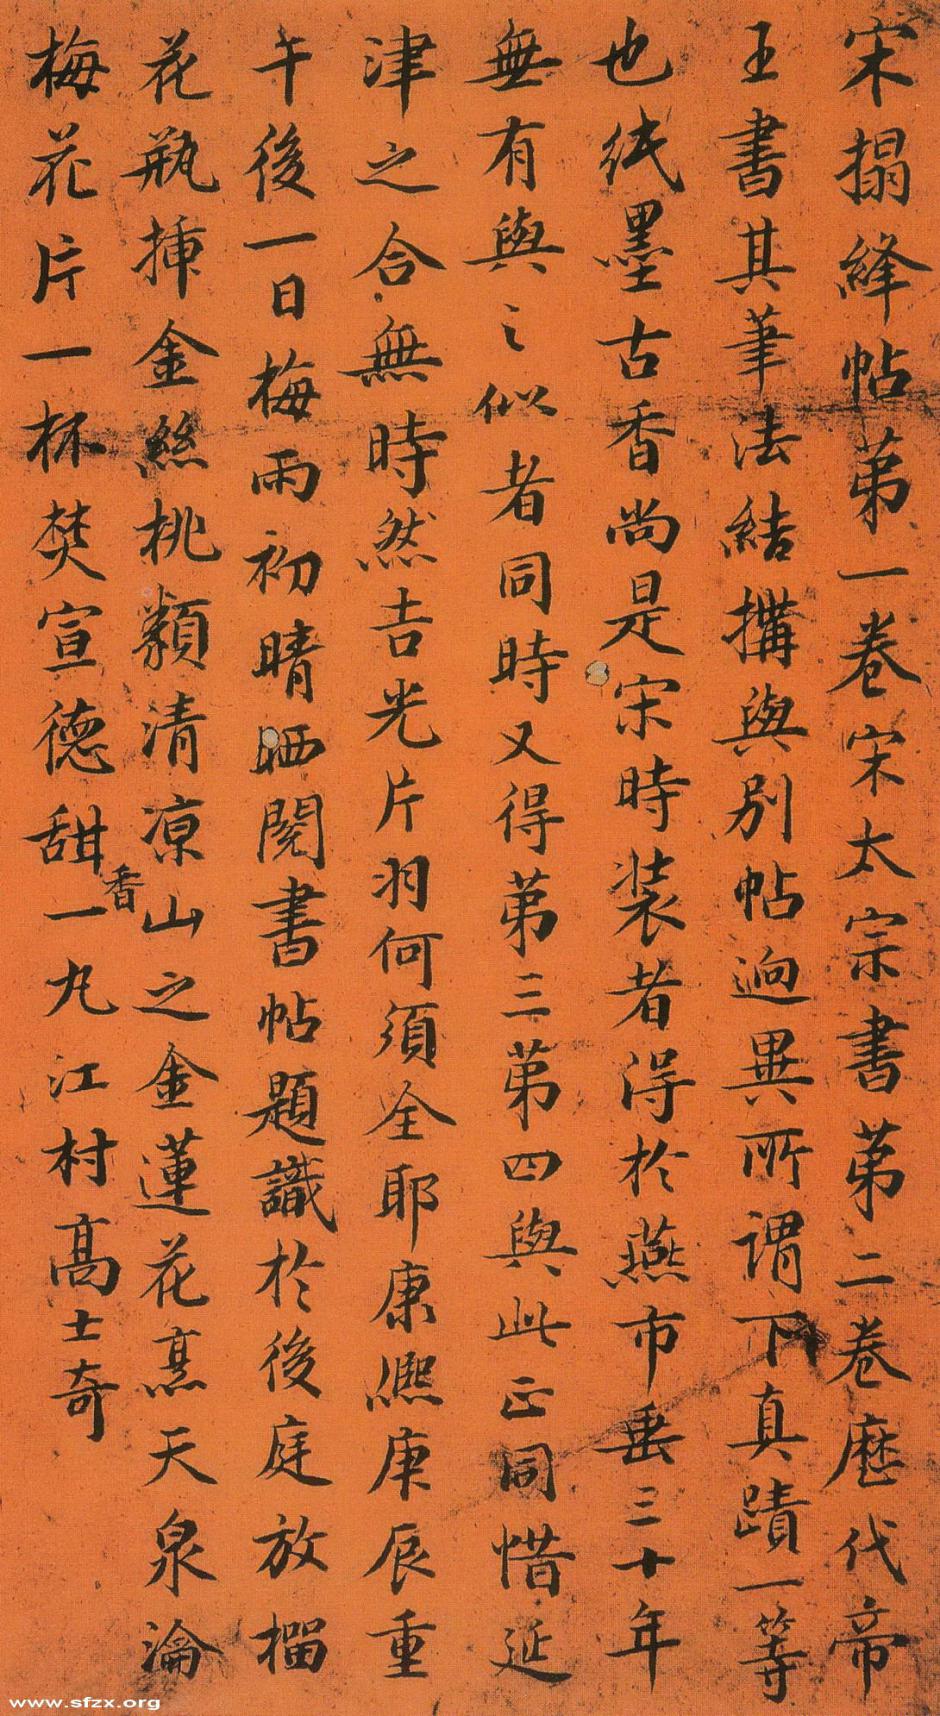 宋搨絳帖第一卷宋太宗書第二卷歷代帝
王書其筆法結搆與別帖迥異所謂下真蹟一等
也紙墨古香尚是宋時装者得於燕市垂三十年
無有與之似者同時又得第三第四與此正同惜延
津之合無時然吉光片羽何須全耶康熙庚辰重
午後一日梅雨初晴晒閱書帖題識於後庭放榴
花瓶挿金絲桃纇清凉山之金蓮花烹天泉瀹
梅花片一杯焚宣德甜香一丸江村高士奇
www.sfzx.org